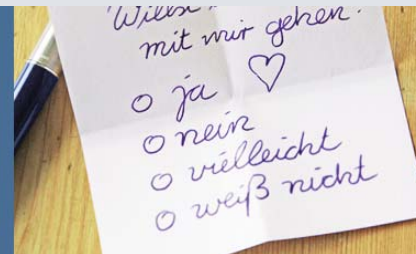 Willst
mit mir gehen?
o ja ♡
o nein
o vielleicht
o weiß nicht